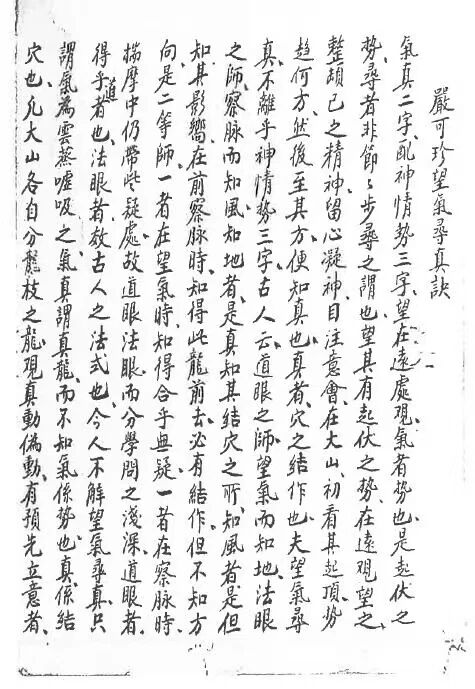 嚴可珍望氣尋真訣
氣真二字、配神情勢三字、望在遠處觀、氣者勢也、是起伏之
勢、尋者非節々步尋之謂也、望其有起伏之勢、在遠觀望之、
整頓已之精神、留心凝神、目注意會、在大山、初看其起頂、勢
趋何方、然後至其方、便知真也、真者、穴之結作也、夫望氣尋
真、不離乎神情勢三字、古人云、道眼之師、望氣而知地、法眼
之師、察脉而知風、知地者、是真知其結穴之所、知風者、是但
知其影嚮、在前察脉時、知得此龍前去必有結作、但不知方
向、是二等師、一者在望氣時、知得合乎無疑、一者在察脉時、
揣摩中仍帶些疑處、故道眼法眼、而分學問之淺深、道眼者、
得乎道者也、法眼者、效古人之法式也、今人不解望氣尋真、只
謂氣為雲蒸噓吸之氣、真謂真龍、而不知氣係勢也、真係結
穴也、凡大山各自分龍枝之龍、觀真動偽動、有預先立意者、